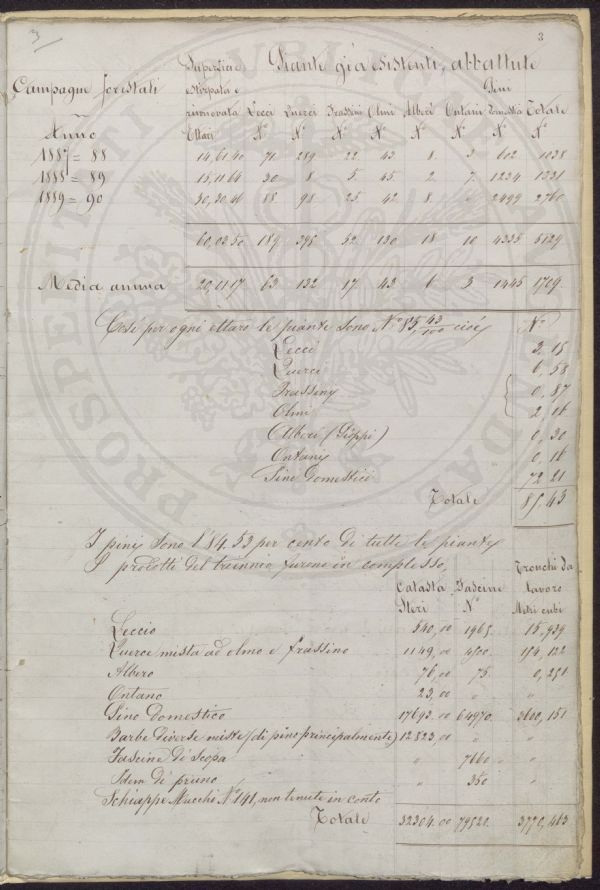 3
3
Superficie Piante già esistenti, abbattute
Campagne forestali estirpata e Pini
rinnovata Lecci Querci Frassini Olmi Alberi Ontani Domestici Totale
Anno Ettari N° N° N° N° N° N° N° N°
1887 = 88 14,61.40 71. 289. 22. 43 8. 3 602 1038
1888 = 89 15,11.64 30. 8 5 45 2. 7. 1234 1331
1889 = 90 30,30.46 88 98 25 42 8. " 2499 2760
60,03.50 189. 395 52. 130 18 10 4335 5129
Media annua 20,01.17 63. 132 17 43 6 3 1445 1709.
Così per ogni ettaro le piante sono N° 85 43/100 cioè N°
Lecci 3, 15
Querci 6, 58
Frassini 0, 87
Olmi 2, 16
Alberi (Pioppi) 0, 30
Ontani 0, 16
Pino Domestico 72 21
Totale 85, 43
I pini sono l'84.53 per cento di tutte le piante
I prodotti del triennio furono in complesso, Tronchi da
Catasta Fascine lavoro
Steri N° Metri cubi
Leccio 540,00 1965. 15,939
Querce mista ad olmo e frassino 1149,00 4500. 154,122
Albero 76,00 75. 0,251
Ontano 23,00 " "
Pino Domestico 17693,00 64970. 3600,151
Barbe diverse miste (di pino principalmente) 12823,00 " "
Fascine di Scopa " 7660 "
Idem di pruno " 350 "
Schiappe Mucchi N° 141, non tenute in conto
Totale 32304.00 79520. 3770,463
PROSPERITATI PVBLICAE AVGENDAE